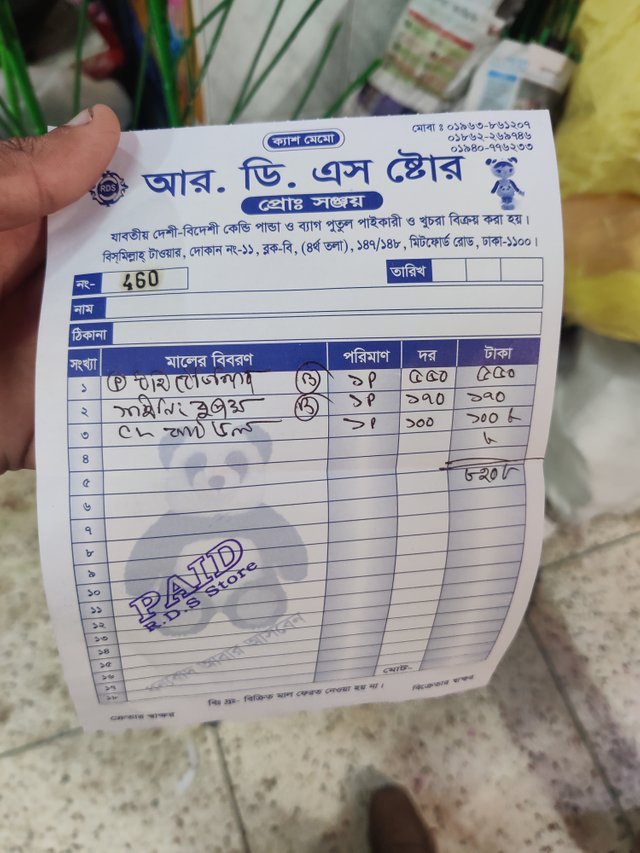 ক্যাশ মেমো
মোবা : ০১৯৬৩-৮৬১২০৭
০১৮৬২-২৬৯৭৪৬
০১৯৪০-৭৭৬২৩৩
RDS
আর. ডি. এস ষ্টোর
প্রোঃ সঞ্জয়
যাবতীয় দেশী-বিদেশী কেন্ডি পান্ডা ও ব্যাগ পুতুল পাইকারী ও খুচরা বিক্রয় করা হয়।
বিস্‌মিল্লাহ্ টাওয়ার, দোকান নং-১১, ব্লক-বি, (৪র্থ তলা), ১৪৭/১৪৮, মিটফোর্ড রোড, ঢাকা-১১০০।
নং- 460 তারিখ
নাম
ঠিকানা
সংখ্যা মালের বিবরণ পরিমাণ দর টাকা
১ B ১P ৫৫০ ৫৫০
২ B ১P ১৭০ ১৭০
৩ ১P ১০০ ১০০
৪
৫ ৮২০
৬
৭
৮
৯
১০
১১
১২
১৩
১৪
১৫
১৬
১৭
১৮
PAID
R.D.S Store
ধন্যবাদ আবার আসবেন
মোট-
বিঃ দ্রঃ- বিক্রিত মাল ফেরত নেওয়া হয় না।
ক্রেতার স্বাক্ষর বিক্রেতার স্বাক্ষর